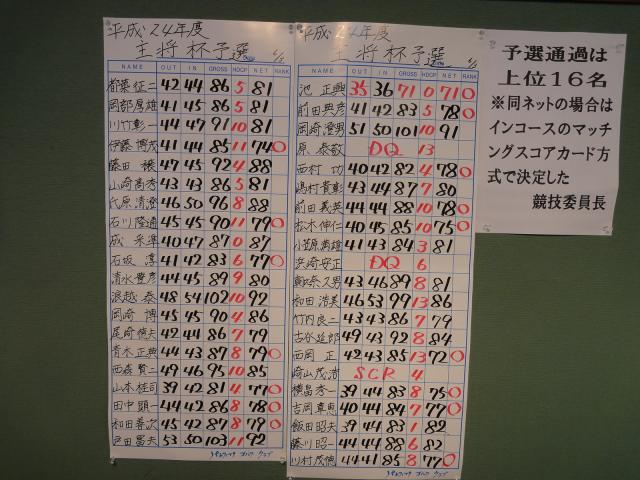 平成24年度
主将杯予選
NAME OUT IN GROSS HDCP NET RANK
42 44 86 5 81
岡部厚雄 41 45 86 5 81
川竹彰一 44 47 91 10 81
伊藤博茂 41 44 85 11 74 ○
藤田 穣 47 45 92 4 88
山崎高秀 43 43 86 5 81
代原清澄 46 50 96 8 88
石川隆通 45 45 90 11 79 ○
成 采準 40 47 87 0 87
石坂 淳 41 42 83 6 77 ○
清水豊彦 44 45 89 9 80
浪越 泰 48 54 102 10 92
岡崎 博 45 45 90 4 86
尾崎信夫 42 44 86 7 79
青木正典 44 43 87 8 79 ○
西森賢二 49 46 95 10 85
山本桂司 39 42 81 4 77 ○
田中顕一 44 42 86 8 78 ○
和田善次 45 42 87 8 79 ○
戸田昌夫 53 50 103 11 92
平成24年度
主将杯予選
NAME OUT IN GROSS HDCP NET RANK
池 正興 35 36 71 0 71 ○
前田典彦 41 42 83 5 78 ○
岡崎澄男 51 50 101 10 91
原 泰敬 DQ 13
西村 功 40 42 82 4 78 ○
嶋村貴彰 43 44 87 7 80
前田義英 44 44 88 10 78 ○
松木伸仁 40 45 85 10 75 ○
小笠原 41 43 84 3 81
浜崎安正 DQ 6
久男 43 46 89 8 81
和田浩美 46 53 99 13 86
竹内良二 43 43 86 7 79
古谷延郎 49 43 92 8 84
西岡 正 42 43 85 13 72 ○
崎山茂浩 SCR 4
横畠秀一 39 44 83 8 75 ○
吉岡章恵 40 44 84 7 77 ○
飯田昭夫 39 44 83 1 82
藤川昭一 44 44 88 6 82
川村茂徳 44 41 85 8 77 ○
予選通過は
上位16名
※同ネットの場合は
インコースのマッチ
ングスコアカード方
式で決定した
競技委員長